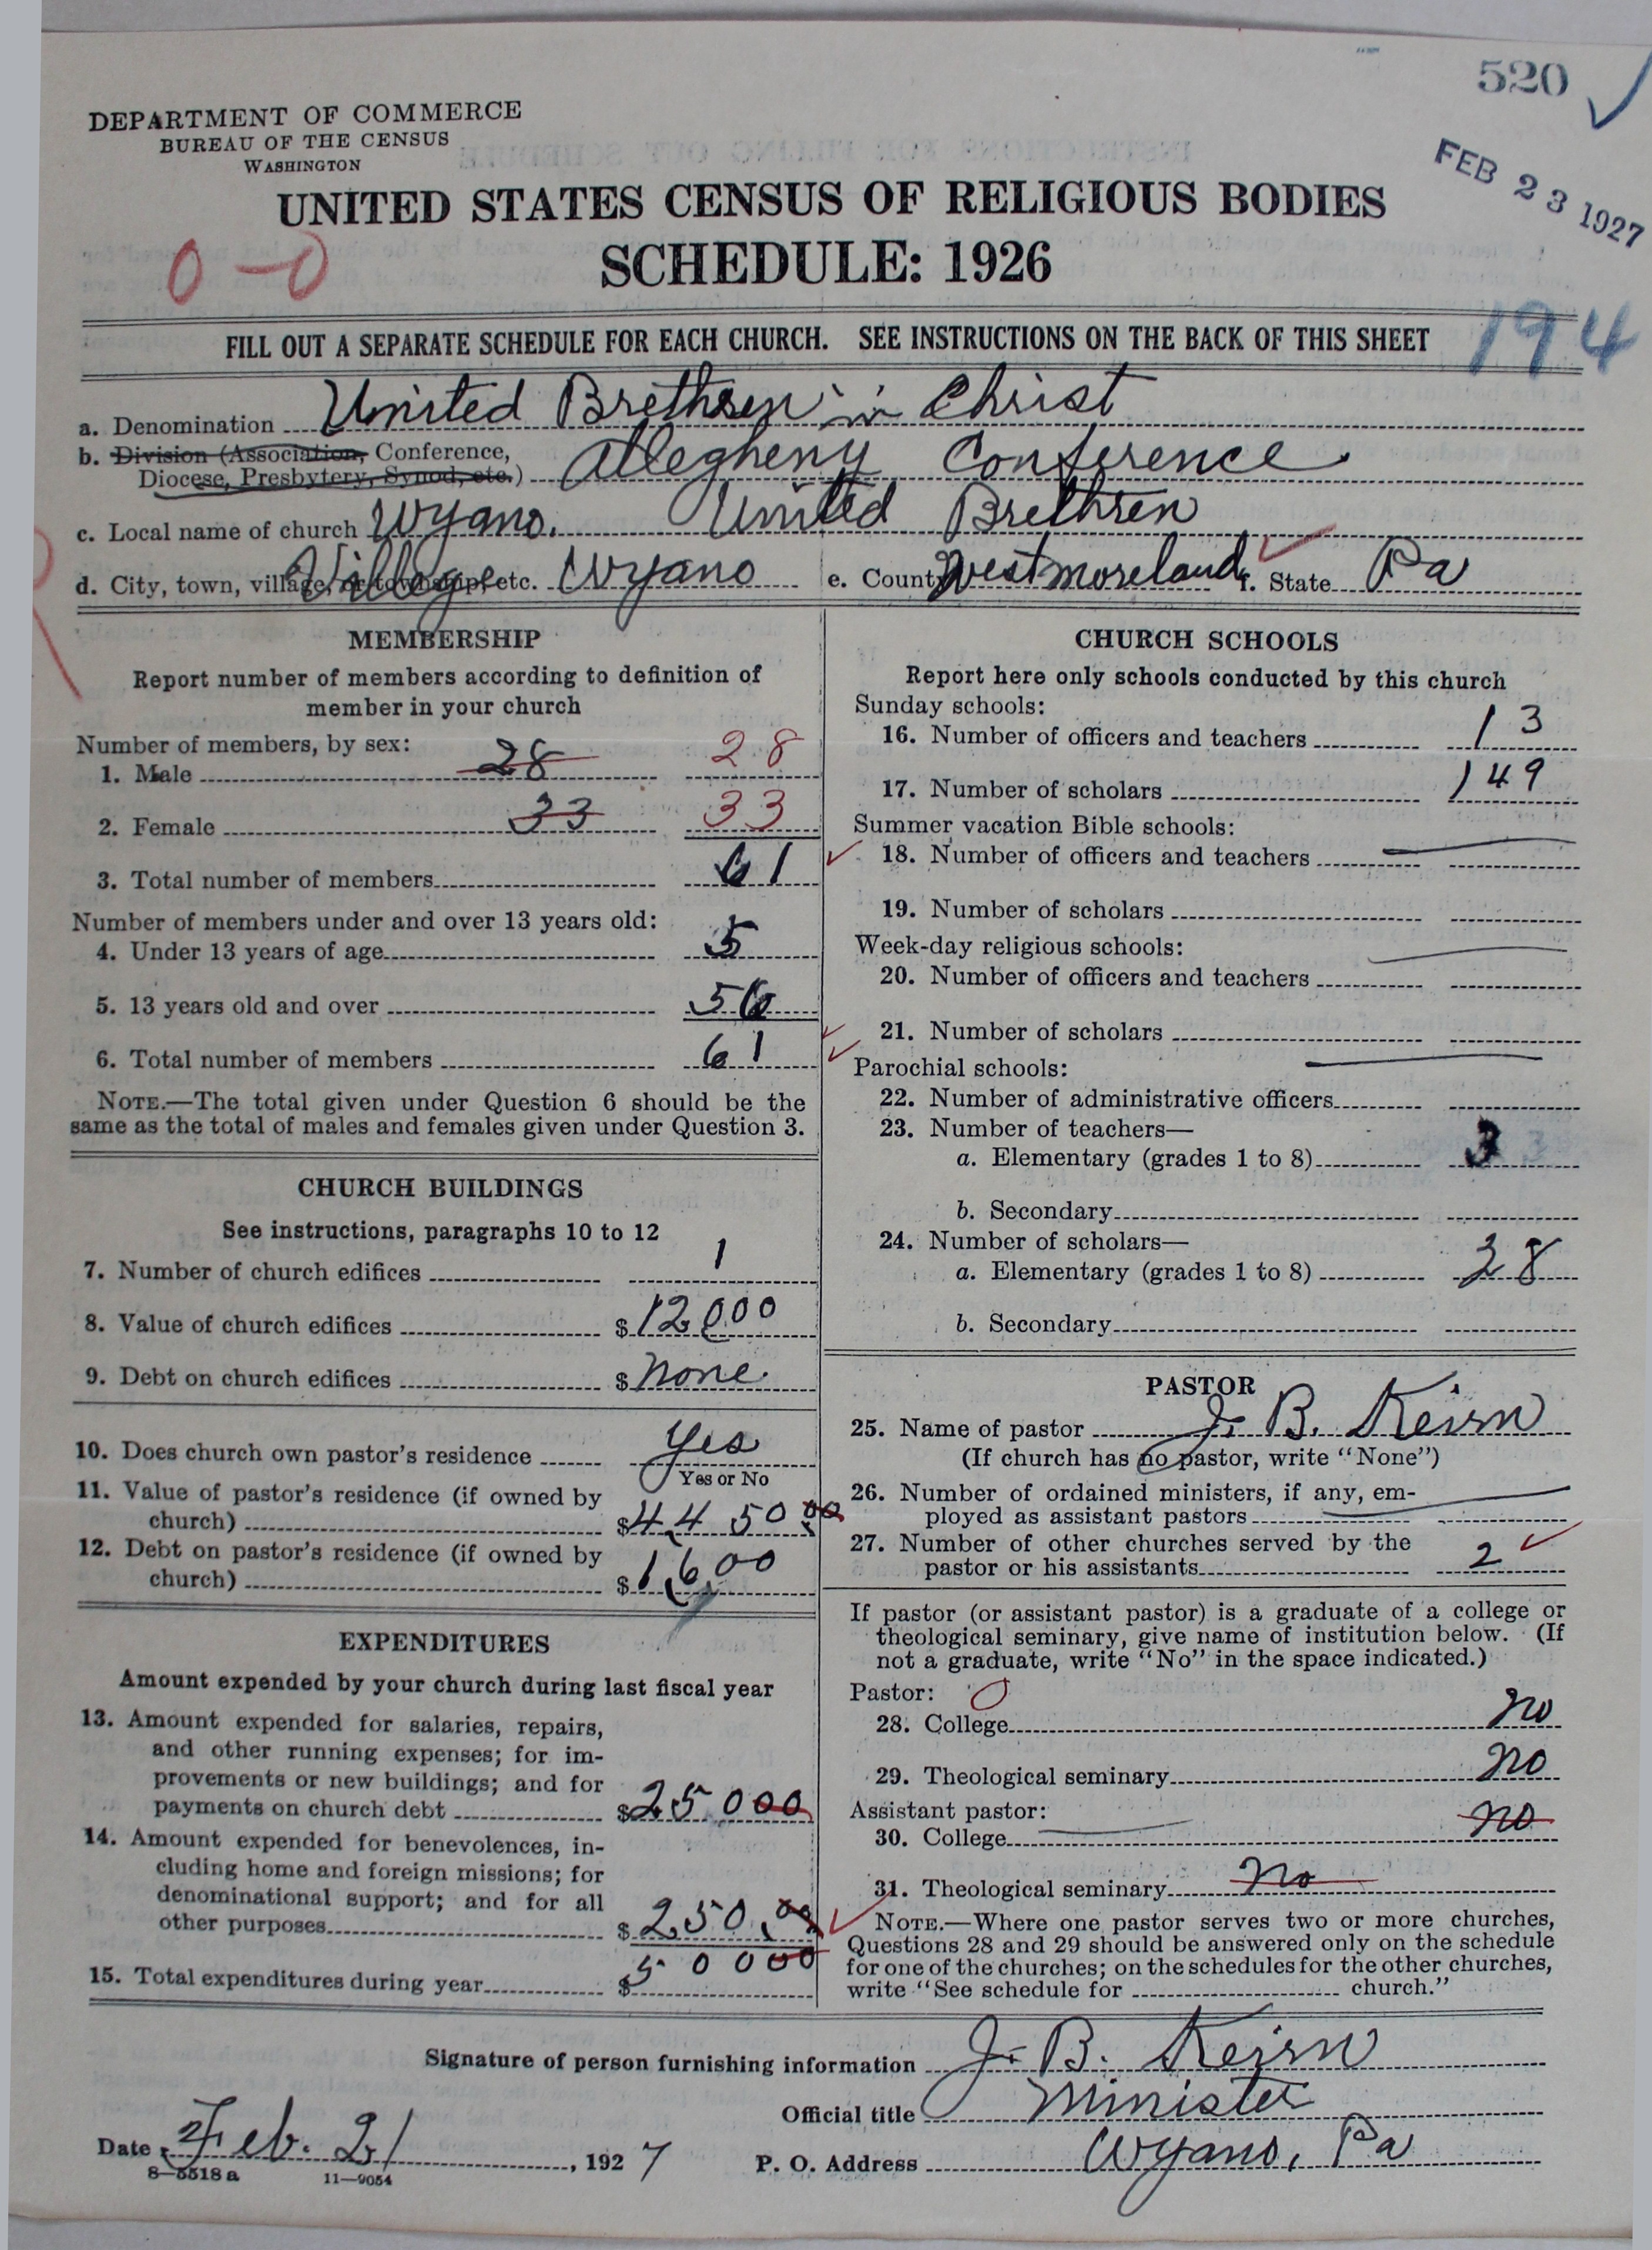 520
DEPARTMENT OF COMMERCE
BUREAU OF THE CENSUS
WASHINGTON
FEB 23 1927
UNITED STATES CENSUS OF RELIGIOUS BODIES
SCHEDULE: 1926
0-0
194
FILL OUT A SEPARATE SCHEDULE FOR EACH CHURCH. SEE INSTRUCTIONS ON THE BACK OF THIS SHEET
a. Denomination United Brethren in Christ
b. Division (Association, Conference,
Diocese, Presbytery, Synod, etc.) Allegheny Conference
c. Local name of church Wyano. United Brethren
d. City, town, village, or township, etc. Village Wyano e. County Westmoreland f. State Pa
MEMBERSHIP
Report number of members according to definition of
member in your church
Number of members, by sex:
1. Male 28 28
2. Female 33 33
3. Total number of members 61
Number of members under and over 13 years old:
4. Under 13 years of age 5
5. 13 years old and over 56
6. Total number of members 61
NOTE.—The total given under Question 6 should be the
same as the total of males and females given under Question 3.
CHURCH BUILDINGS
See instructions, paragraphs 10 to 12
7. Number of church edifices 1
8. Value of church edifices $12,000
9. Debt on church edifices $ none
10. Does church own pastor's residence Yes
Yes or No
11. Value of pastor's residence (if owned by
church) $4,450.00
12. Debt on pastor's residence (if owned by
church) $1,600
EXPENDITURES
Amount expended by your church during last fiscal year
13. Amount expended for salaries, repairs,
and other running expenses; for im-
provements or new buildings; and for
payments on church debt $25000
14. Amount expended for benevolences, in-
cluding home and foreign missions; for
denominational support; and for all
other purposes $250.00
15. Total expenditures during year $50000
CHURCH SCHOOLS
Report here only schools conducted by this church
Sunday schools:
16. Number of officers and teachers 13
17. Number of scholars 149
Summer vacation Bible schools:
18. Number of officers and teachers
19. Number of scholars
Week-day religious schools:
20. Number of officers and teachers
21. Number of scholars
Parochial schools:
22. Number of administrative officers
23. Number of teachers—
a. Elementary (grades 1 to 8) 3
b. Secondary
24. Number of scholars—
a. Elementary (grades 1 to 8) 38
b. Secondary
PASTOR
25. Name of pastor J. B. Keirn
(If church has no pastor, write "None")
26. Number of ordained ministers, if any, em-
ployed as assistant pastors
27. Number of other churches served by the
pastor or his assistants 2
If pastor (or assistant pastor) is a graduate of a college or
theological seminary, give name of institution below. (If
not a graduate, write "No" in the space indicated.)
Pastor: 0
28. College no
29. Theological seminary no
Assistant pastor:
30. College no
31. Theological seminary no
NOTE.—Where one pastor serves two or more churches,
Questions 28 and 29 should be answered only on the schedule
for one of the churches; on the schedules for the other churches,
write "See schedule for church."
Signature of person furnishing information J. B. Keirn
Official title Minister
Date Feb. 21, 1927
P. O. Address Wyano, Pa
8-5518a 11-9054